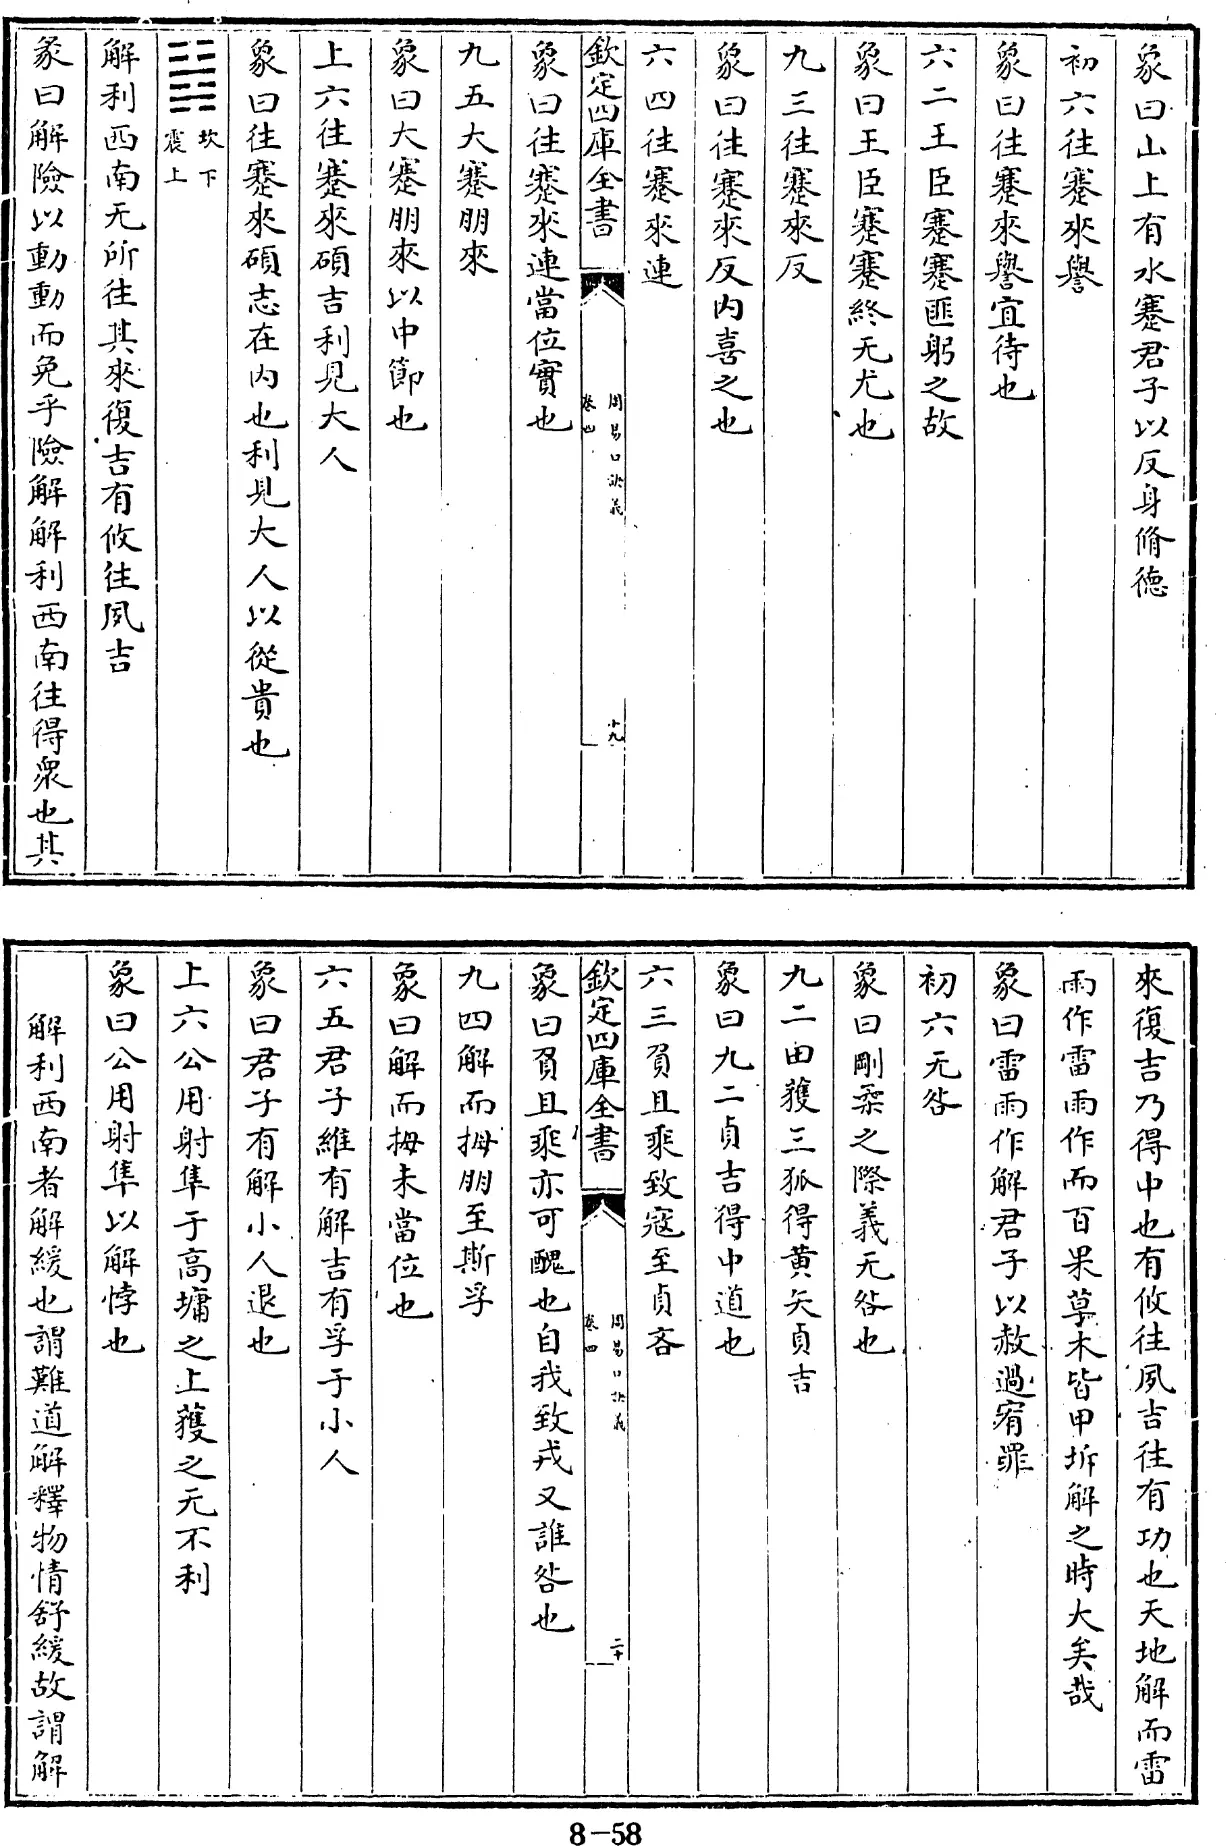 象曰山上有水蹇君子以反身脩德
初六往蹇來譽
象曰往蹇來譽宜待也
六二王臣蹇蹇匪躬之故
象曰王臣蹇蹇終无尤也
九三往蹇來反
象曰往蹇來反内喜之也
六四往蹇來連
欽定四庫全書
周易口訣義
卷四
十九
象曰往蹇來連當位實也
九五大蹇朋來
象曰大蹇朋來以中節也
上六往蹇來碩吉利見大人
象曰往蹇來碩志在内也利見大人以從貴也
䷧
坎下
震上
解利西南无所往其來復吉有攸往夙吉
彖曰解險以動動而免乎險解解利西南往得衆也其
來復吉乃得中也有攸往夙吉往有功也天地解而雷
雨作雷雨作而百果草木皆甲坼解之時大矣哉
象曰雷雨作解君子以赦過宥罪
初六无咎
象曰剛柔之際義无咎也
九二田獲三狐得黄矢貞吉
象曰九二貞吉得中道也
六三負且乘致寇至貞吝
欽定四庫全書
周易口訣義
卷四
二十
象曰負且乘亦可醜也自我致戎又誰咎也
九四解而拇朋至斯孚
象曰解而拇未當位也
六五君子維有解吉有孚于小人
象曰君子有解小人退也
上六公用射隼于高墉之上獲之无不利
象曰公用射隼以解悖也
解利西南者解緩也謂難道解釋物情舒緩故謂解
8-58